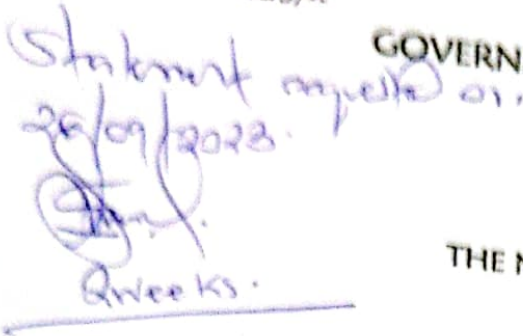 GOVERN
Statement requested on
26/09/2023.
2weeks.
THE N